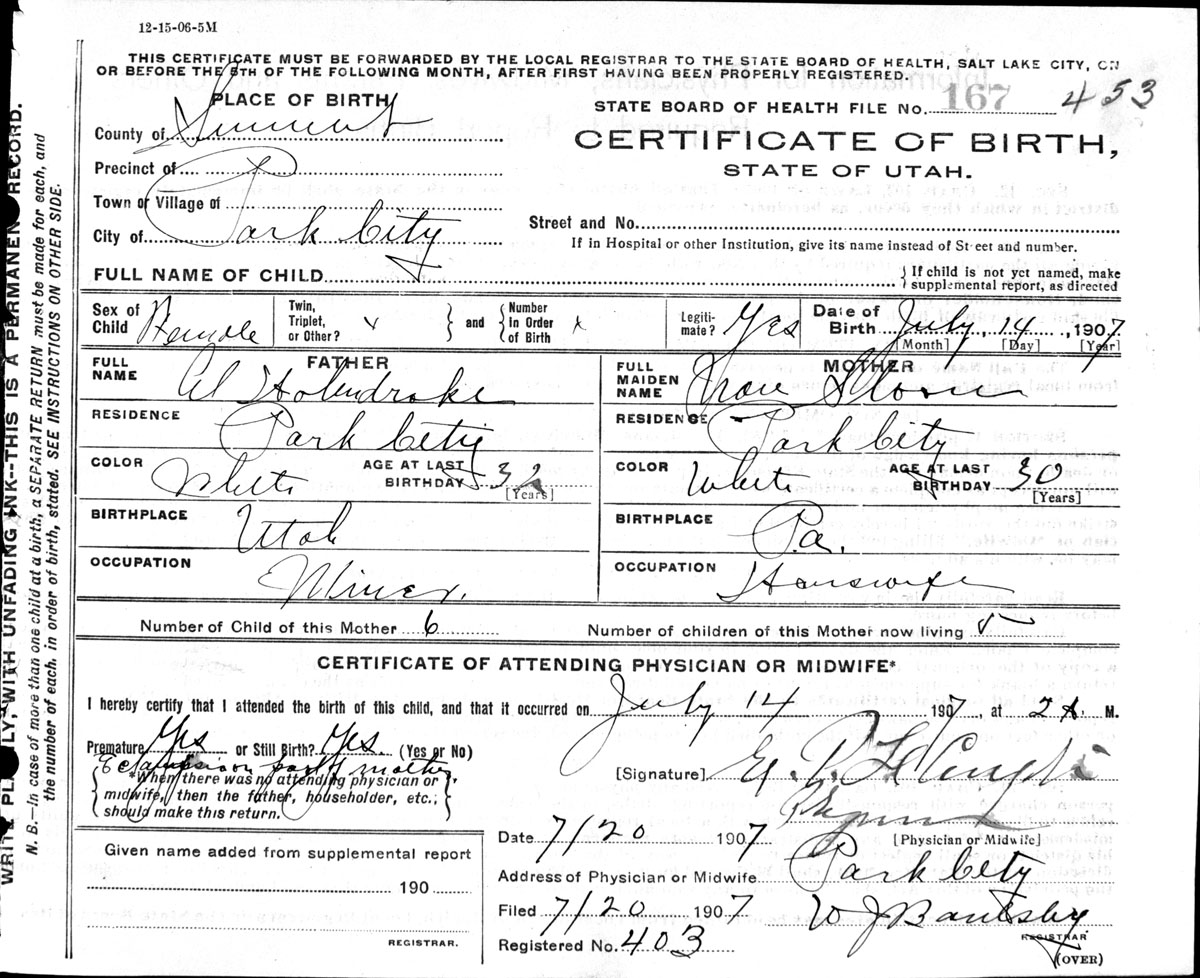 12-15-06-5M
THIS CERTIFICATE MUST BE FORWARDED BY THE LOCAL REGISTRAR TO THE STATE BOARD OF HEALTH, SALT LAKE CITY, ON
OR BEFORE THE 5TH OF THE FOLLOWING MONTH, AFTER FIRST HAVING BEEN PROPERLY REGISTERED.
PLACE OF BIRTH
County of Summit
Precinct of
Town or Village of
City of Park City
STATE BOARD OF HEALTH FILE No. 167 453
CERTIFICATE OF BIRTH,
STATE OF UTAH.
Street and No.
If in Hospital or other Institution, give its name instead of Street and number.
FULL NAME OF CHILD
If child is not yet named, make
supplemental report, as directed
Sex of Child Female
Twin, Triplet, or Other?
and
Number In Order of Birth
Legitimate? Yes
Date of Birth July 14, 1907
[Month] [Day] [Year]
FATHER
FULL NAME Al
RESIDENCE Park City
COLOR White
AGE AT LAST BIRTHDAY 32
[Years]
BIRTHPLACE Utah
OCCUPATION Miner.
MOTHER
FULL MAIDEN NAME
RESIDENCE Park City
COLOR White
AGE AT LAST BIRTHDAY 30
[Years]
BIRTHPLACE Pa.
OCCUPATION Housewife
Number of Child of this Mother 6
Number of children of this Mother now living 5
CERTIFICATE OF ATTENDING PHYSICIAN OR MIDWIFE*
I hereby certify that I attended the birth of this child, and that it occurred on July 14 1907, at 2 A. M.
Premature Yes or Still Birth? Yes. (Yes or No)
Eclampsia on part of mother
*When there was no attending physician or
midwife, then the father, householder, etc.,
should make this return.
[Signature]
[Physician or Midwife]
Given name added from supplemental report
190
REGISTRAR.
Date 7/20 1907
Address of Physician or Midwife Park City
Filed 7/20 1907
W J
REGISTRAR
Registered No. 403
(OVER)
WRITE PLAINLY, WITH UNFADING INK--THIS IS A PERMANENT RECORD.
N. B.—In case of more than one child at a birth, a SEPARATE RETURN must be made for each, and
the number of each, in order of birth, stated. SEE INSTRUCTIONS ON OTHER SIDE.